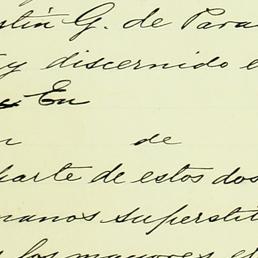 stín G. de Para
y discernido e
En
n de
parte de estos dos
manos superstit
los mayores es